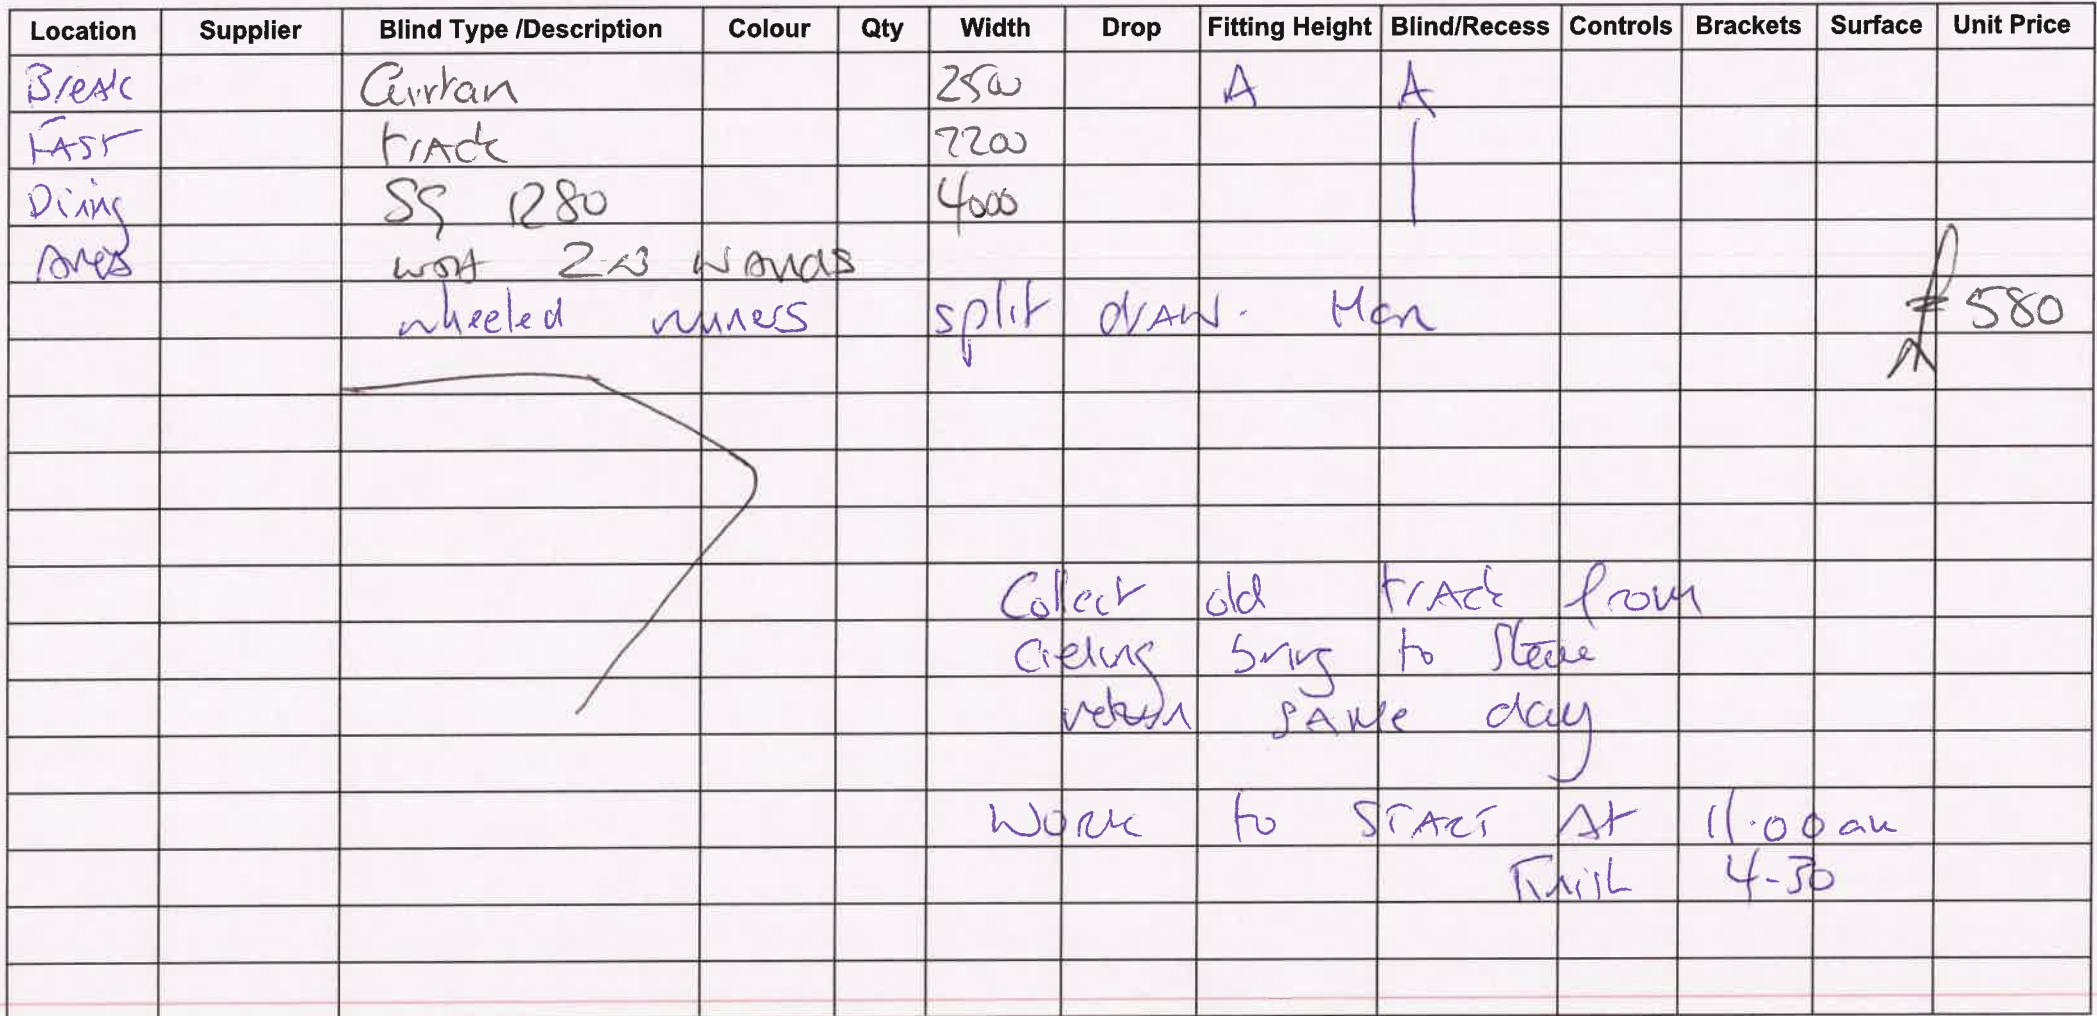 Location Supplier Blind Type /Description Colour Qty Width Drop Fitting Height Blind/Recess Controls Brackets Surface Unit Price
Break Curtan 2500 A A
FAST trAck 2200
Dining SG 1280 4000
Area 2 wands
wheeled runers split drAw. £580
Collect old trAck from
Cieling bring to Steve
return sAMe day
Work to START At 11.00am
Finish 4-30